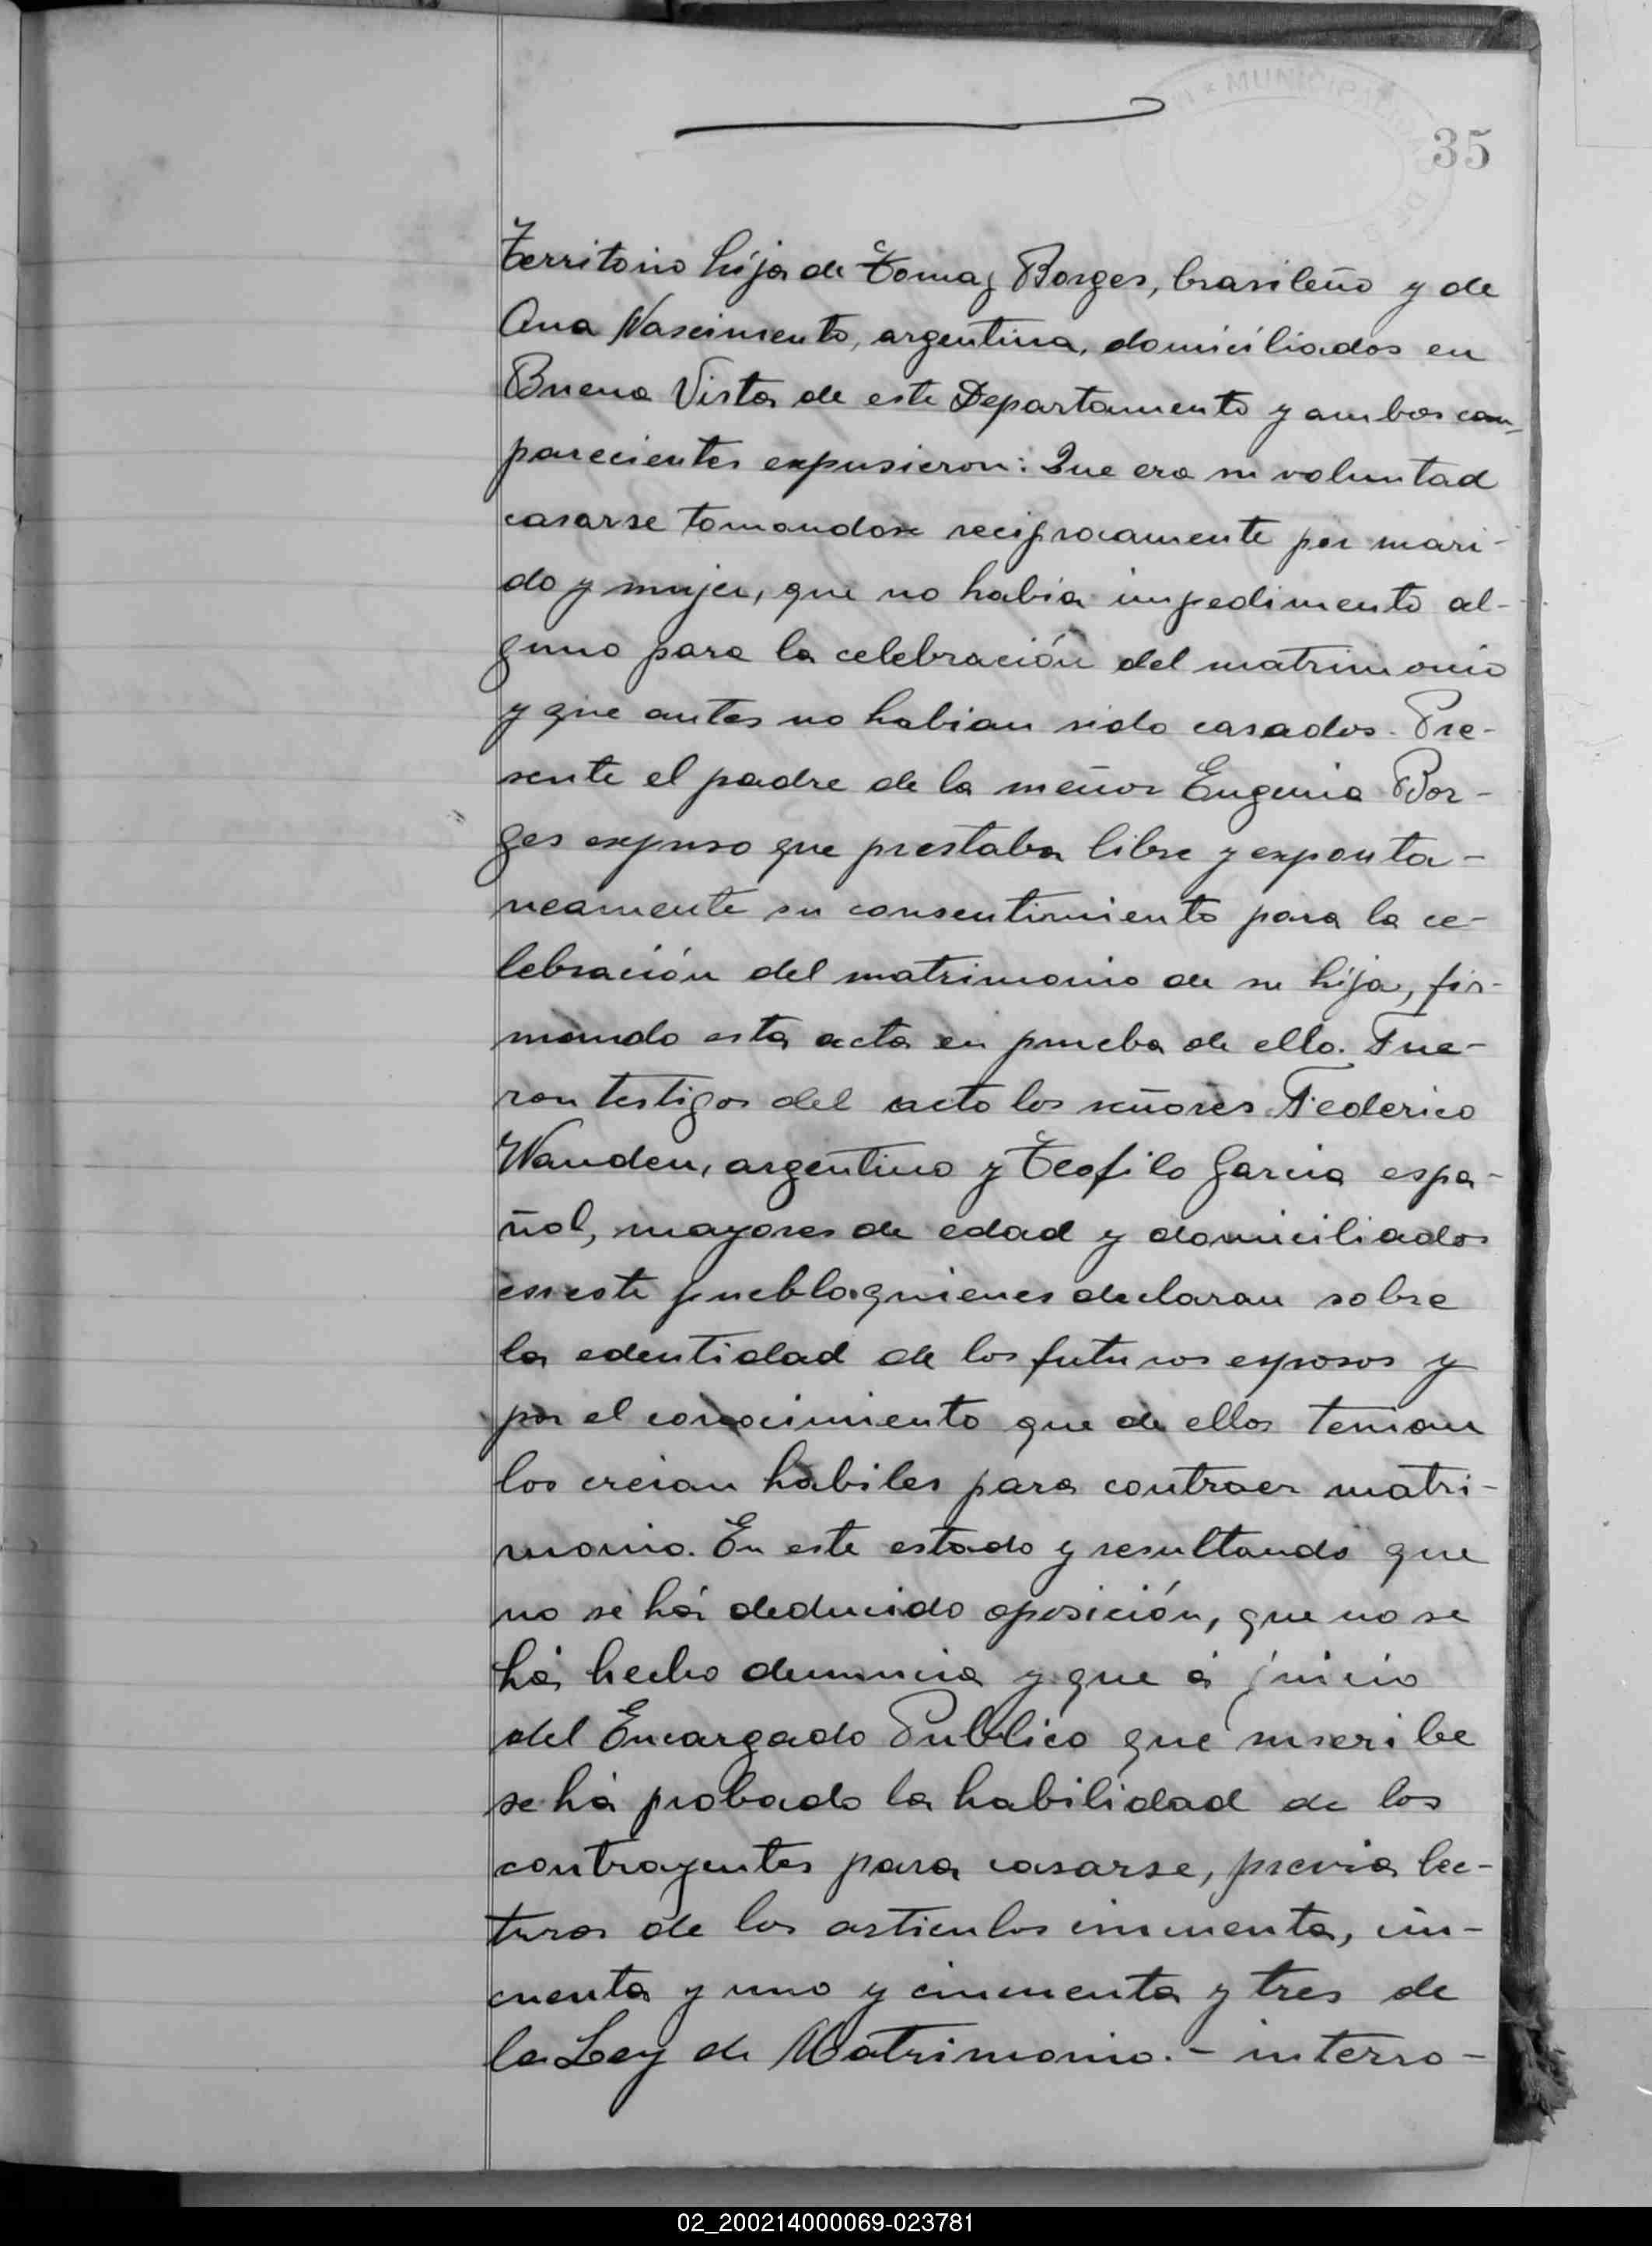 MUNICIPAL
35
Territorio hija de Tomaz Borges, brasileño y de
Ana Nascimento, argentina, domiciliados en
Buena Vista de este Departamento y ambos com-
parecientes expusieron: Que era su voluntad
casarse tomandose reciprocamente por mari-
do y mujer, que no habia impedimento al-
guno para la celebración del matrimonio
y que antes no habian sido casados. Pre-
sente el padre de la menor Eugenia Bor-
ges expuso que prestaba libre y exponta-
neamente su consentimiento para la ce-
lebración del matrimonio de su hija, fir-
mando esta acta en prueba de ello. Fue-
ron testigos del acto los señores Federico
Wanden, argentino y Teofilo Garcia espa-
ñol, mayores de edad y domiciliados
en este pueblo quienes declaran sobre
la edentidad de los futuros esposos y
por el conocimiento que de ellos tenian
los creian habiles para contraer matri-
monio. En este estado y resultando que
no se há deducido oposición, que no se
há hecho denuncia y que á juicio
del Encargado Publico que suscribe
se há probado la habilidad de los
contrayentes para casarse, previa lec-
tura de los articulos cincuenta, cin-
cuenta y uno y cincuenta y tres de
la Ley de Matrimonio.- interro-
02_200214000069-023781